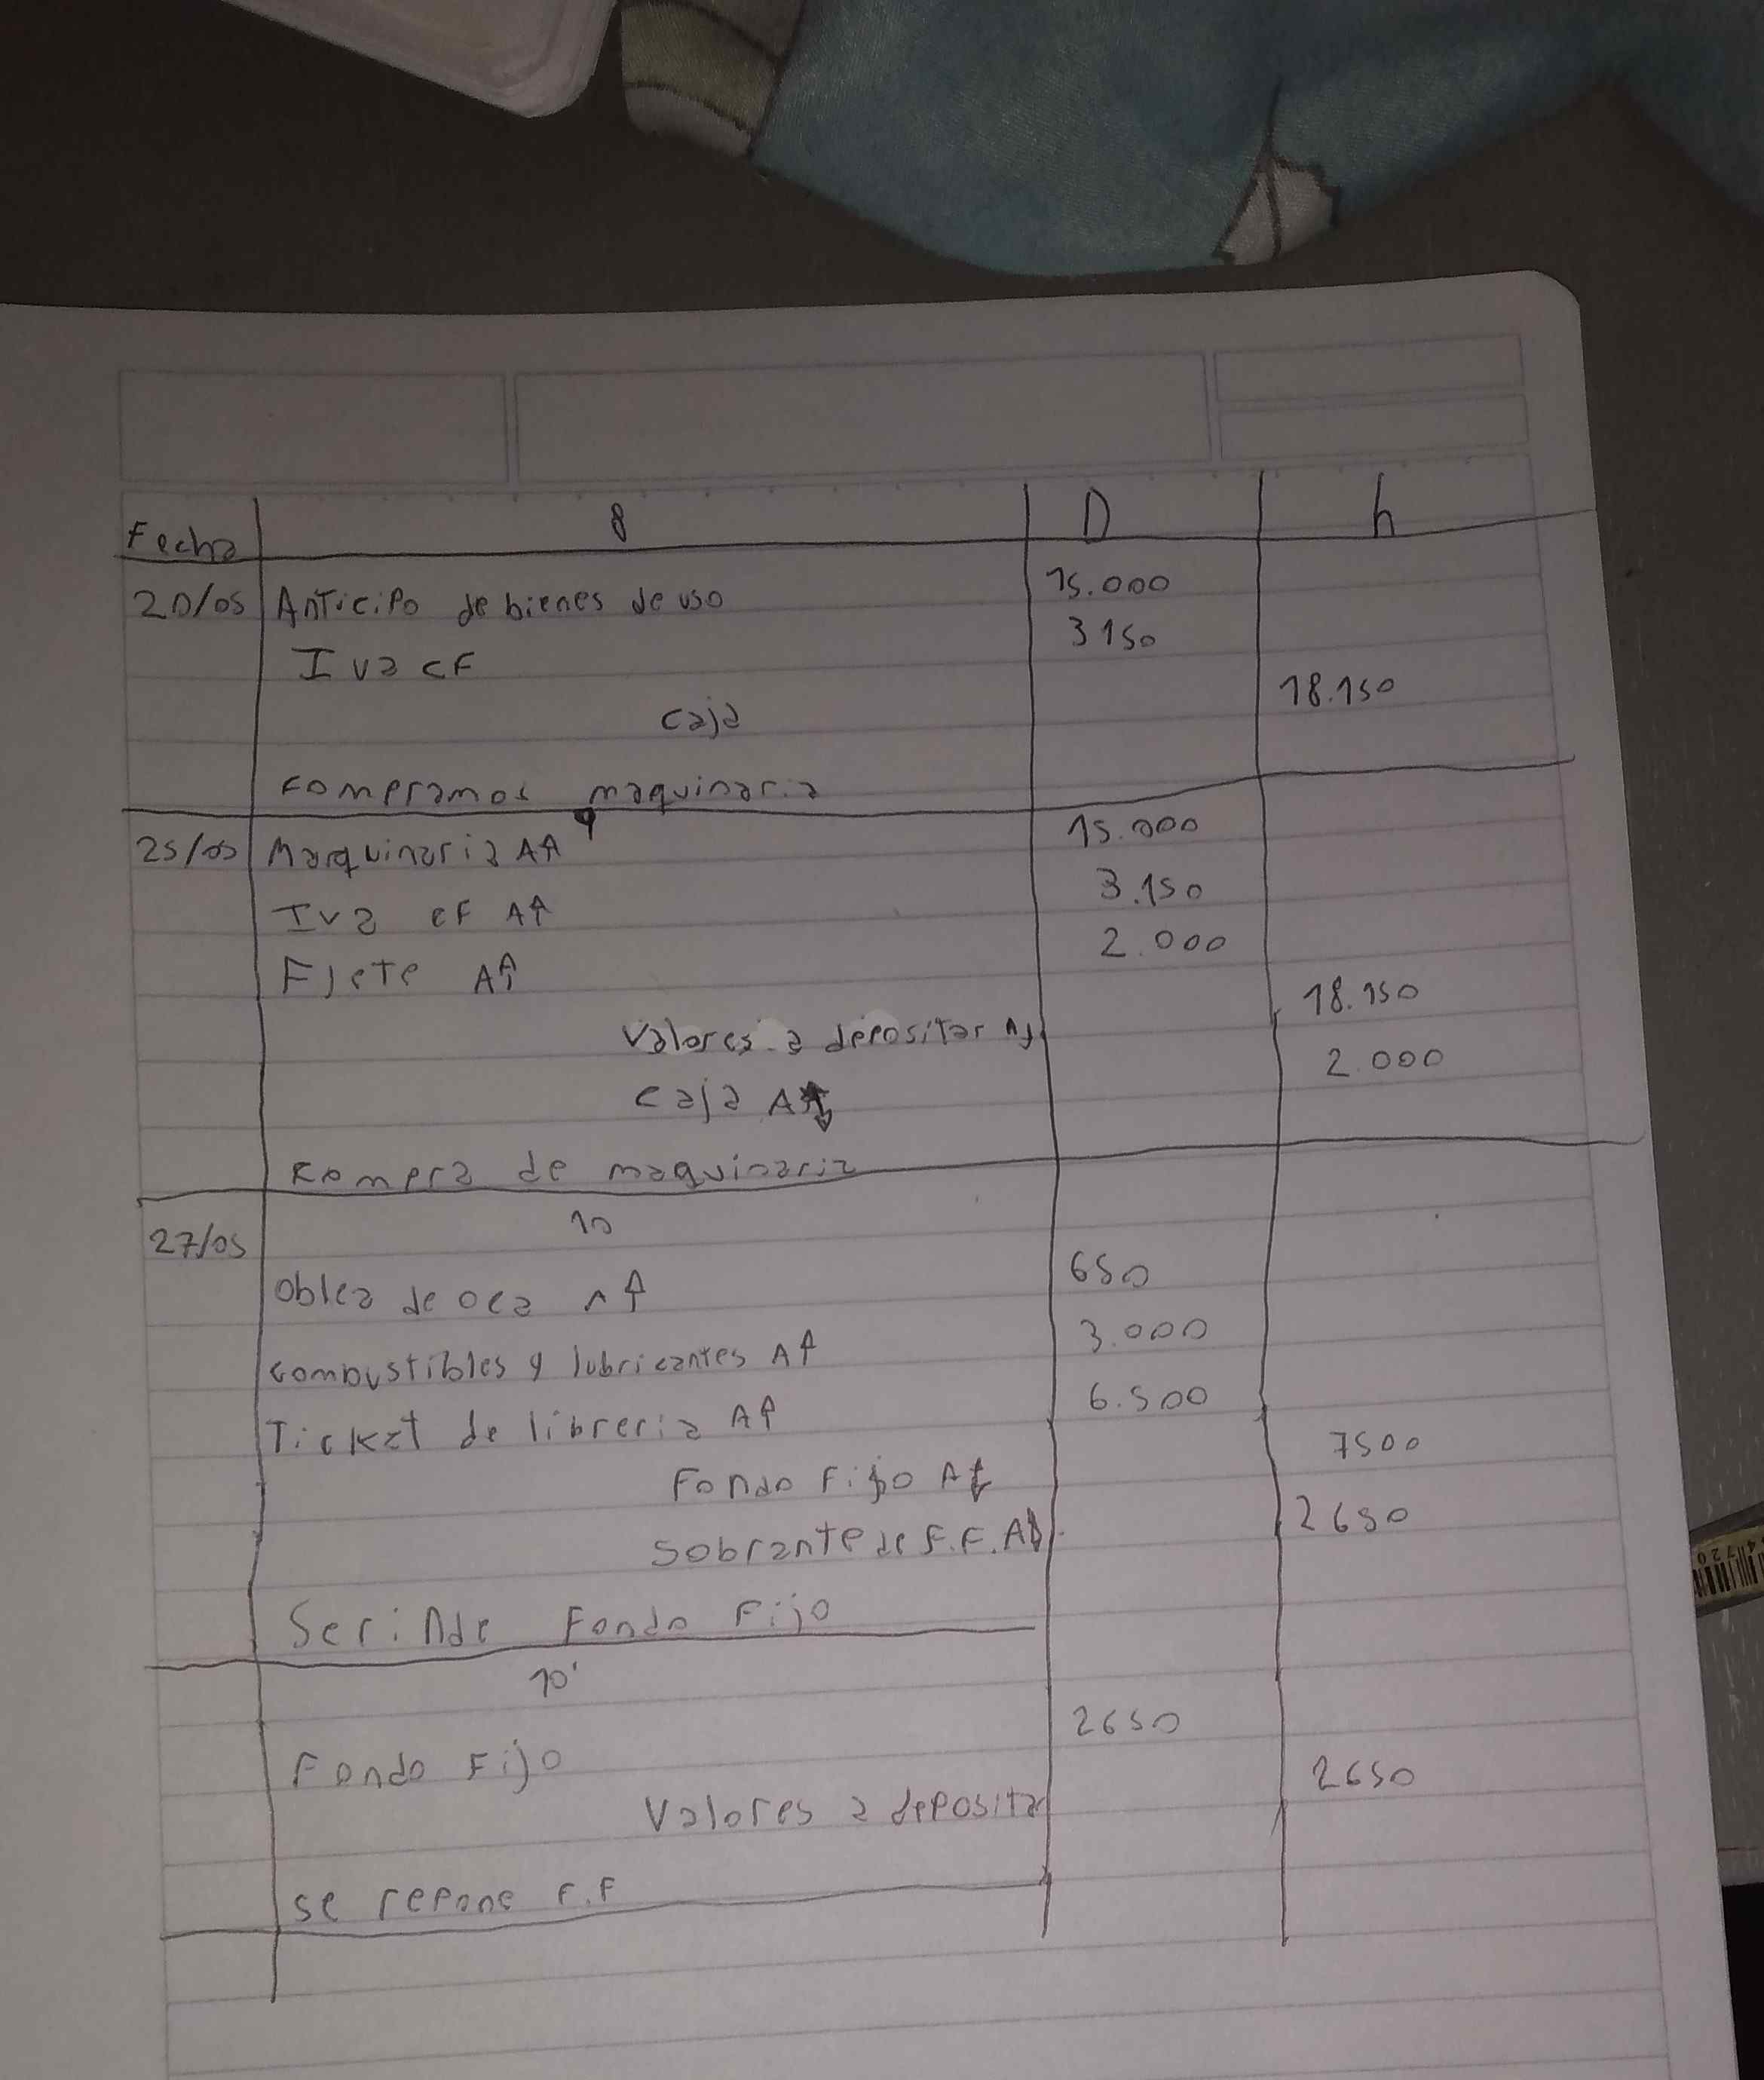 Fecha 8 D h
20/05 Anticipo de bienes de uso 15.000
Iva CF 3150
Caja 18.150
Compramos maquinaria
9
25/05 Marquinaria A↑ 15.000
Iva CF A↑ 3.150
Flete A↑ 2.000
Valores a depositar A↓ 18.150
Caja A↓ 2.000
Compra de maquinaria
27/05 10
Oblea de oca A↑ 650
Combustibles y lubricantes A↑ 3.000
Ticket de libreria A↑ 6.500
Fondo Fijo A↓ 7500
Sobrante de F.F. A↓ 2650
Se rinde Fondo Fijo
10'
Fondo Fijo 2650
Valores a deposita 2650
Se repone F.F